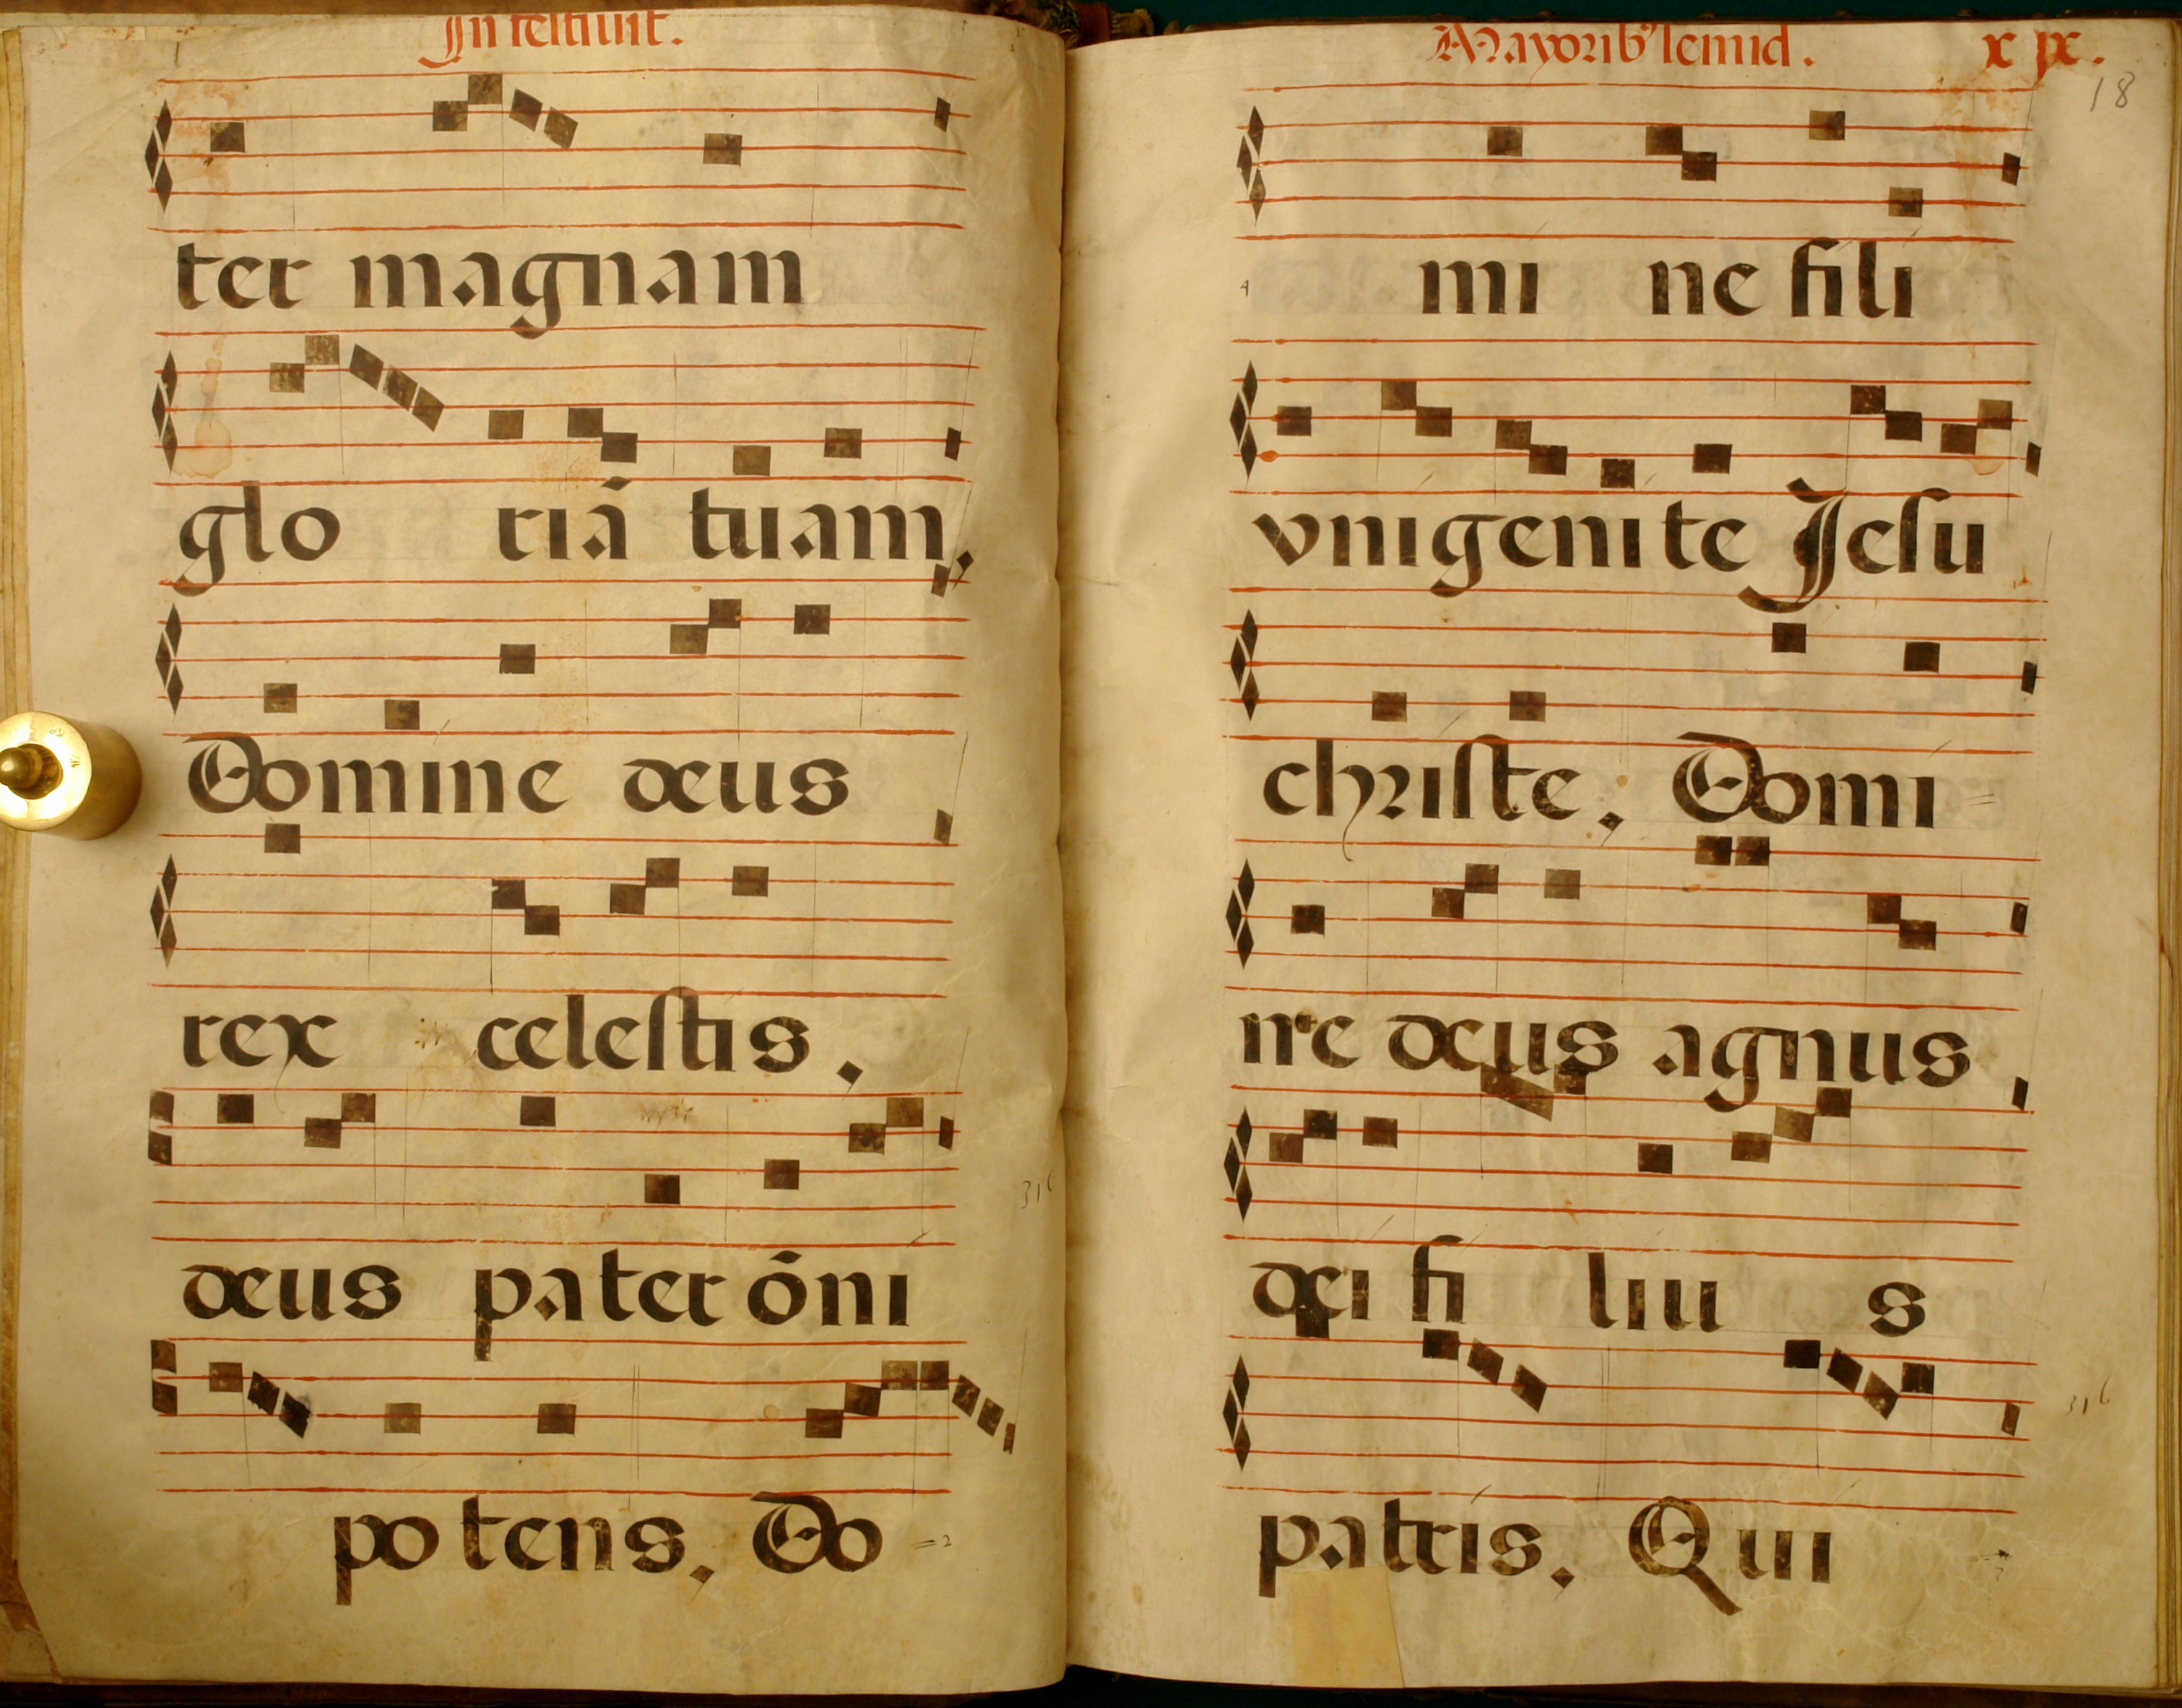 In festiuit.
ter magnam
glo riā tuam,
Domine deus
rex celestis.
deus pater ōni
316
po tens, Do
=2
Mayoribꝰ semid. x ix.
18
4
mi ne fili
vnigenite Jesu
christe, Domi
=
ne deus agnus
dei fi liu s
316
patris. Qui